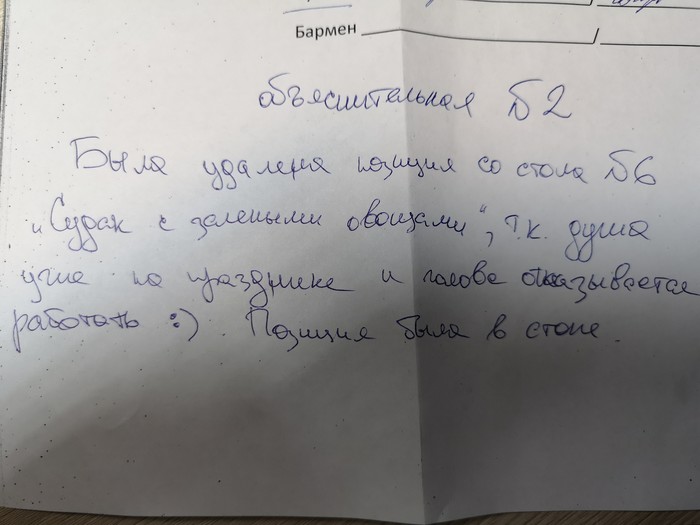 Бармен /
объяснительная №2
Была удалена позиция со стола №6
„Судак с зелеными овощами“, т.к. душа
уже на празднике и голова отказывается
работать :) . Позиция была в стопе.